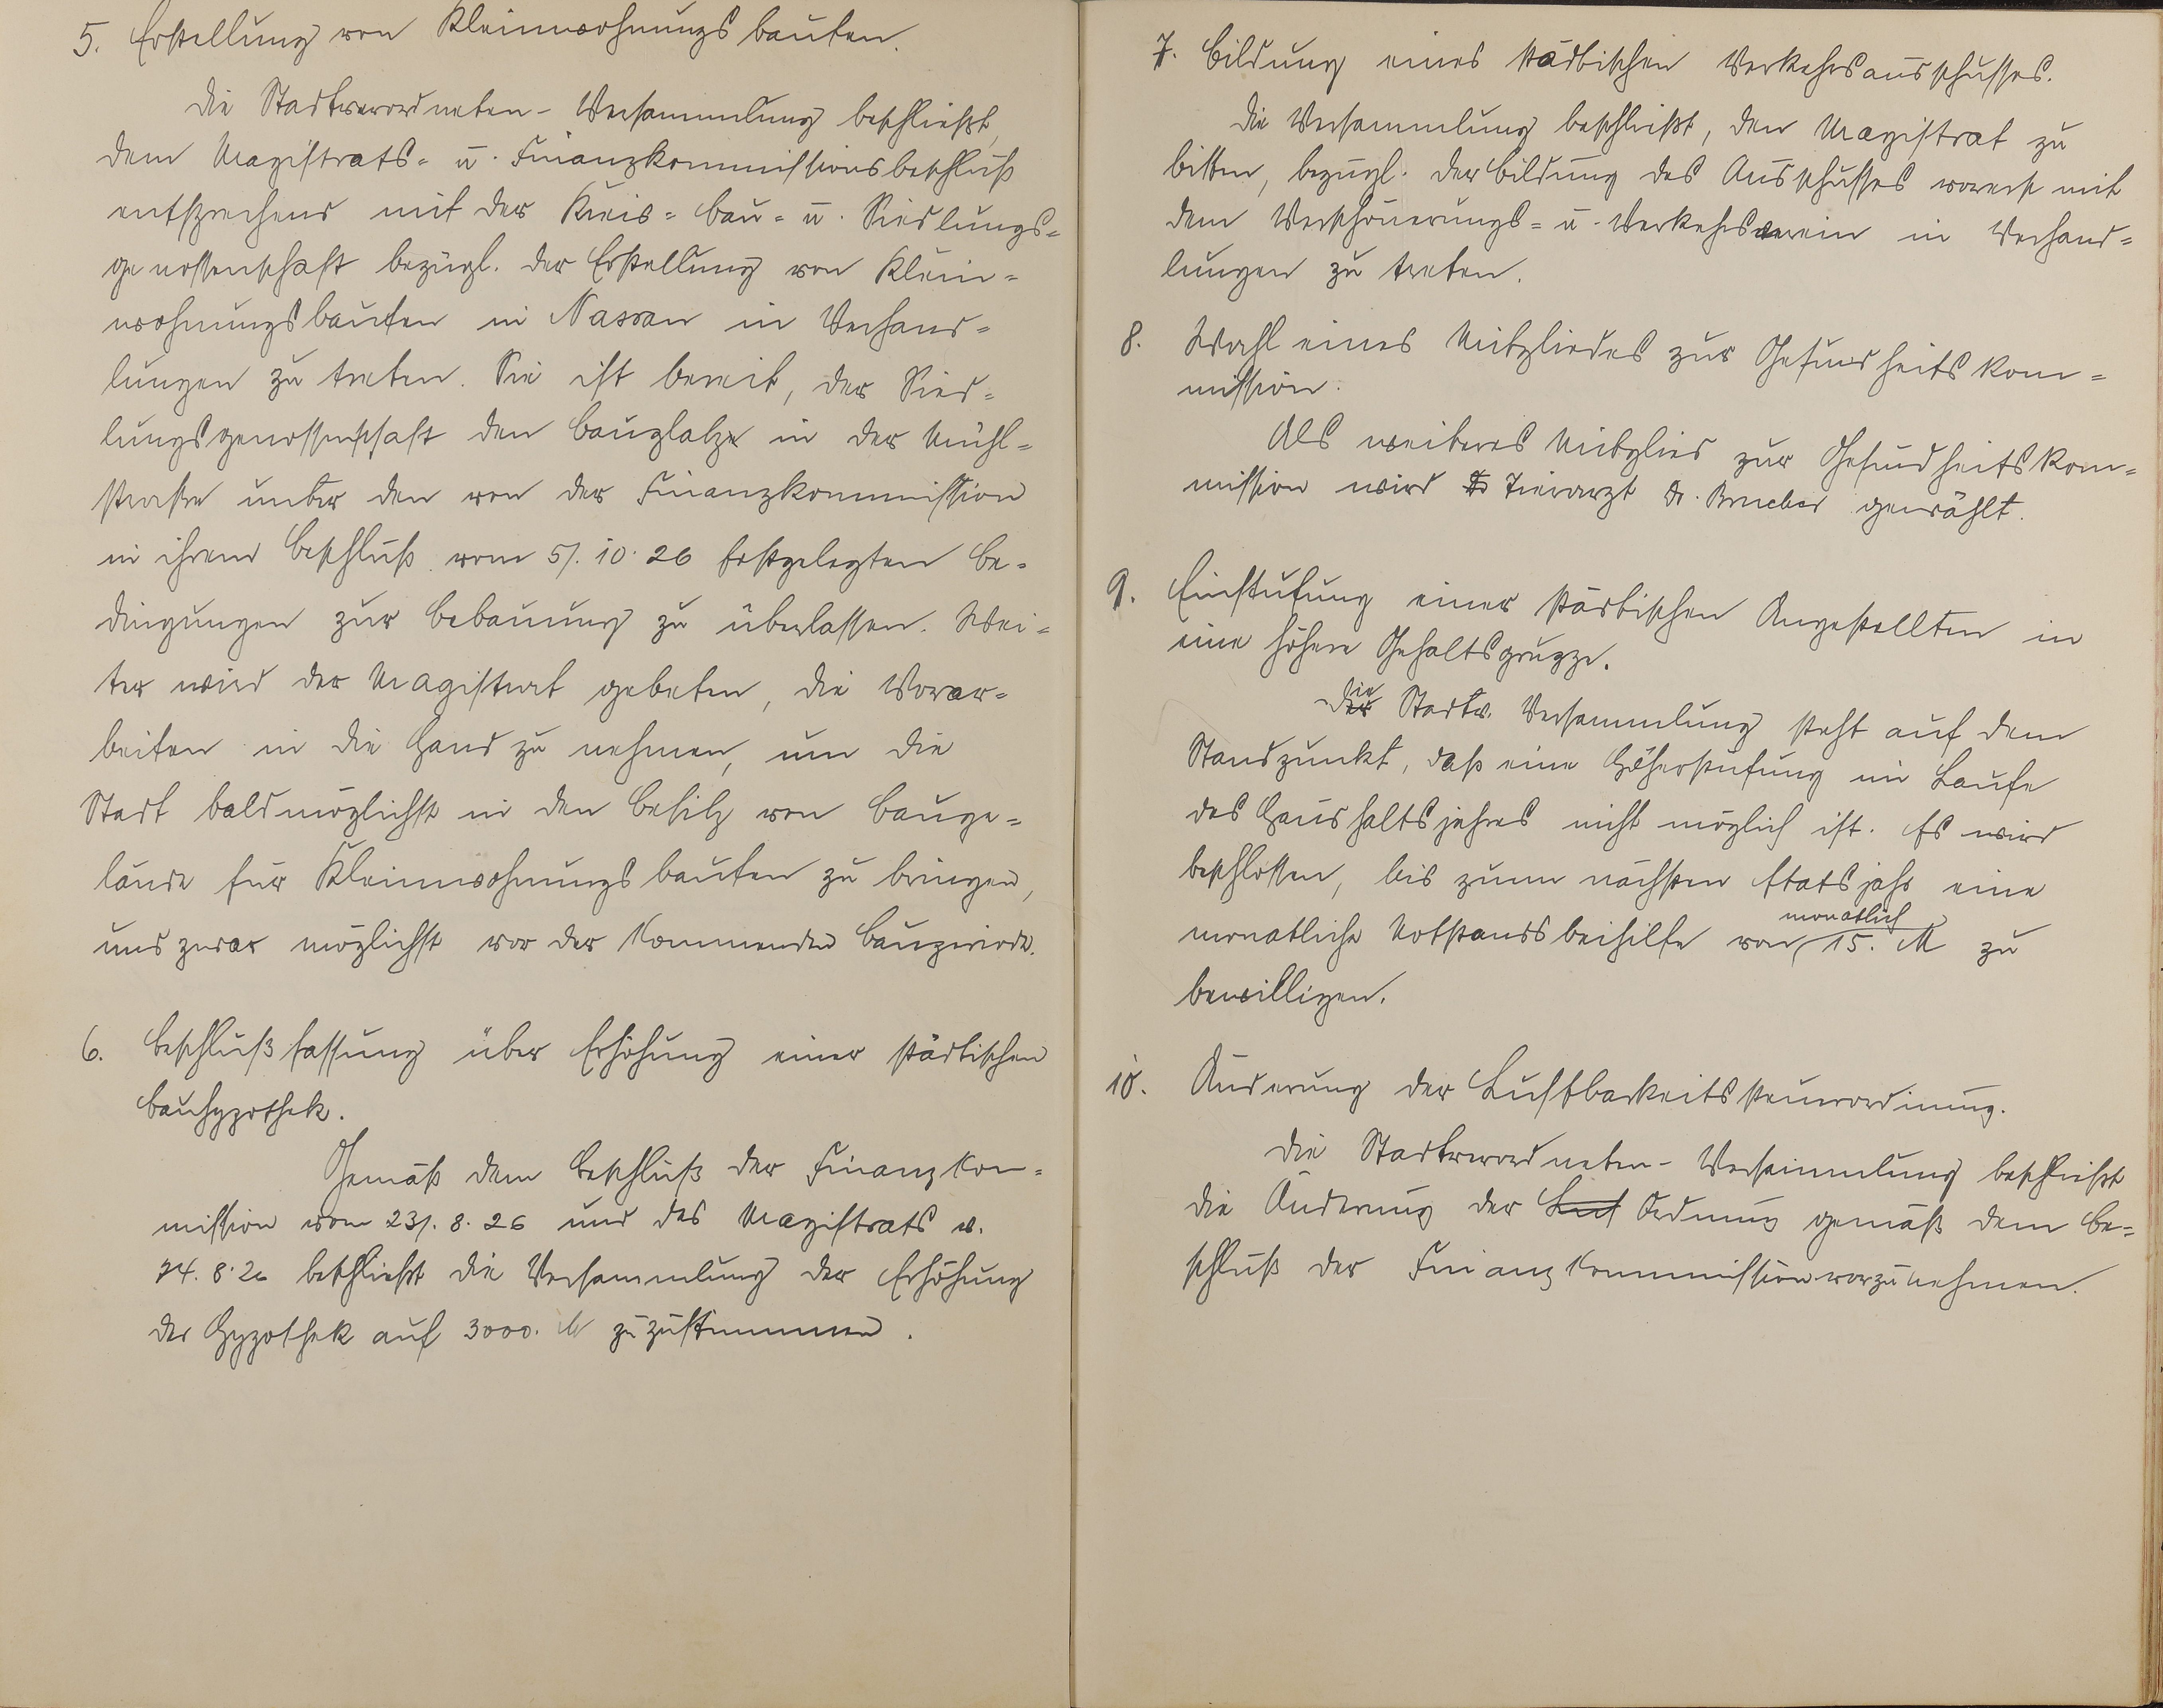 5. Erstellung von Kleinwohnungsbauten.
Die Stadtverordneten-Versammlung beschließt,
dem Magistrats- u. Finanzkommissionsbeschluß
entsprechend mit der Kreis- Bau- u. Siedlungs-
genossenschaft bezügl. der Erstellung von Klein-
wohnungsbauten in Nassau in Verhand-
lungen zu treten. Sie ist bereit, der Sied-
lungsgenossenschaft den Bauplatz in der Mühl-
straße unter den von der Finanzkommission
in ihrem Beschluß vom 5/.10.26 festgelegten Be-
dingungen zur Bebauung zu überlassen. Wei-
ter wird der Magistrat gebeten, die Vorar-
beiten in die Hand zu nehmen, um die
Stadt baldmöglichst in den Besitz von Bauge-
lände für Kleinwohnungsbauten zu bringen,
und zwar möglichst vor der kommenden Bauperiode.
6. Beschlußfassung über Erhöhung einer städtischen
Bauhypothek.
Gemäß dem Beschluß der Finanzkom-
mission vom 23/.8.26 und des Magistrats v.
24.8.26 beschließt die Versammlung der Erhöhung
der Hypothek auf 3000. M zuzustimmen.
7. Bildung eines städtischen Verkehrsausschusses.
Die Versammlung beschließt, den Magistrat zu
bitten, bezügl. der Bildung des Ausschusses vorerst mit
dem Verschönerungs- u. Verkehrsverein in Verhand-
lungen zu treten.
8. Wahl eines Mitgliedes zur Gesundheitskom-
mission.
Als weiteres Mitglied zur Gesundheitskom-
mission wird Tierarzt Dr. gewählt.
9. Einstufung einer städtischen Angestellten in
eine höhere Gehaltsgruppe.
Die Stadtv. Versammlung steht auf dem
Standpunkt, daß eine Höherstufung im Laufe
des Haushaltsjahres nicht möglich ist. Es wird
beschlossen, bis zum nächsten Etatsjahr eine
monatlich
monatliche Notstandsbeihilfe von 15. M zu
bewilligen.
10. Änderung der Lustbarkeitssteuerordnung.
Die Stadtverordneten-Versammlung beschließt
die Änderung der Lust Ordnung gemäß dem Be-
schluß der Finanzkommission vorzunehmen.